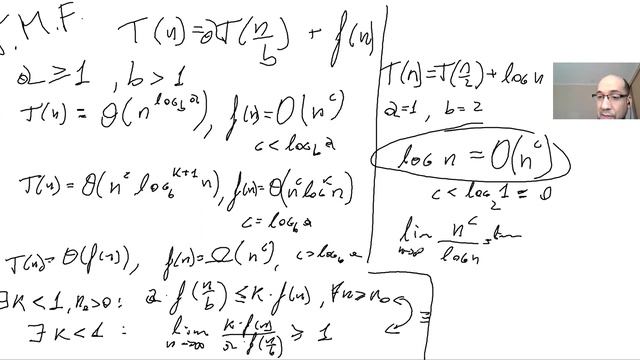 M.F.
T(n)=aT(n/b) + f(n)
a ≥ 1 , b > 1
T(n) = Θ(n^{log_b a}), f(n)=O(n^c)
c < log_b a
T(n) = Θ(n^c log_b^{k+1} n), f(n)=Θ(n^c log^k n)
c = log_b a
T(n) = Θ(f(n)), f(n)=Ω(n^c), c > log_b a
∃ k < 1, n₀ > 0 : a·f(n/b) ≤ k·f(n), ∀n ≥ n₀
∃ k < 1 : lim_{n→∞} k·f(n) / a·f(n/b) ≥ 1
T(n) = T(n/2) + log n
a=1 , b=2
log n = O(n^c)
c < log_2 1 = 0
lim_{n→∞} n^c / log n =